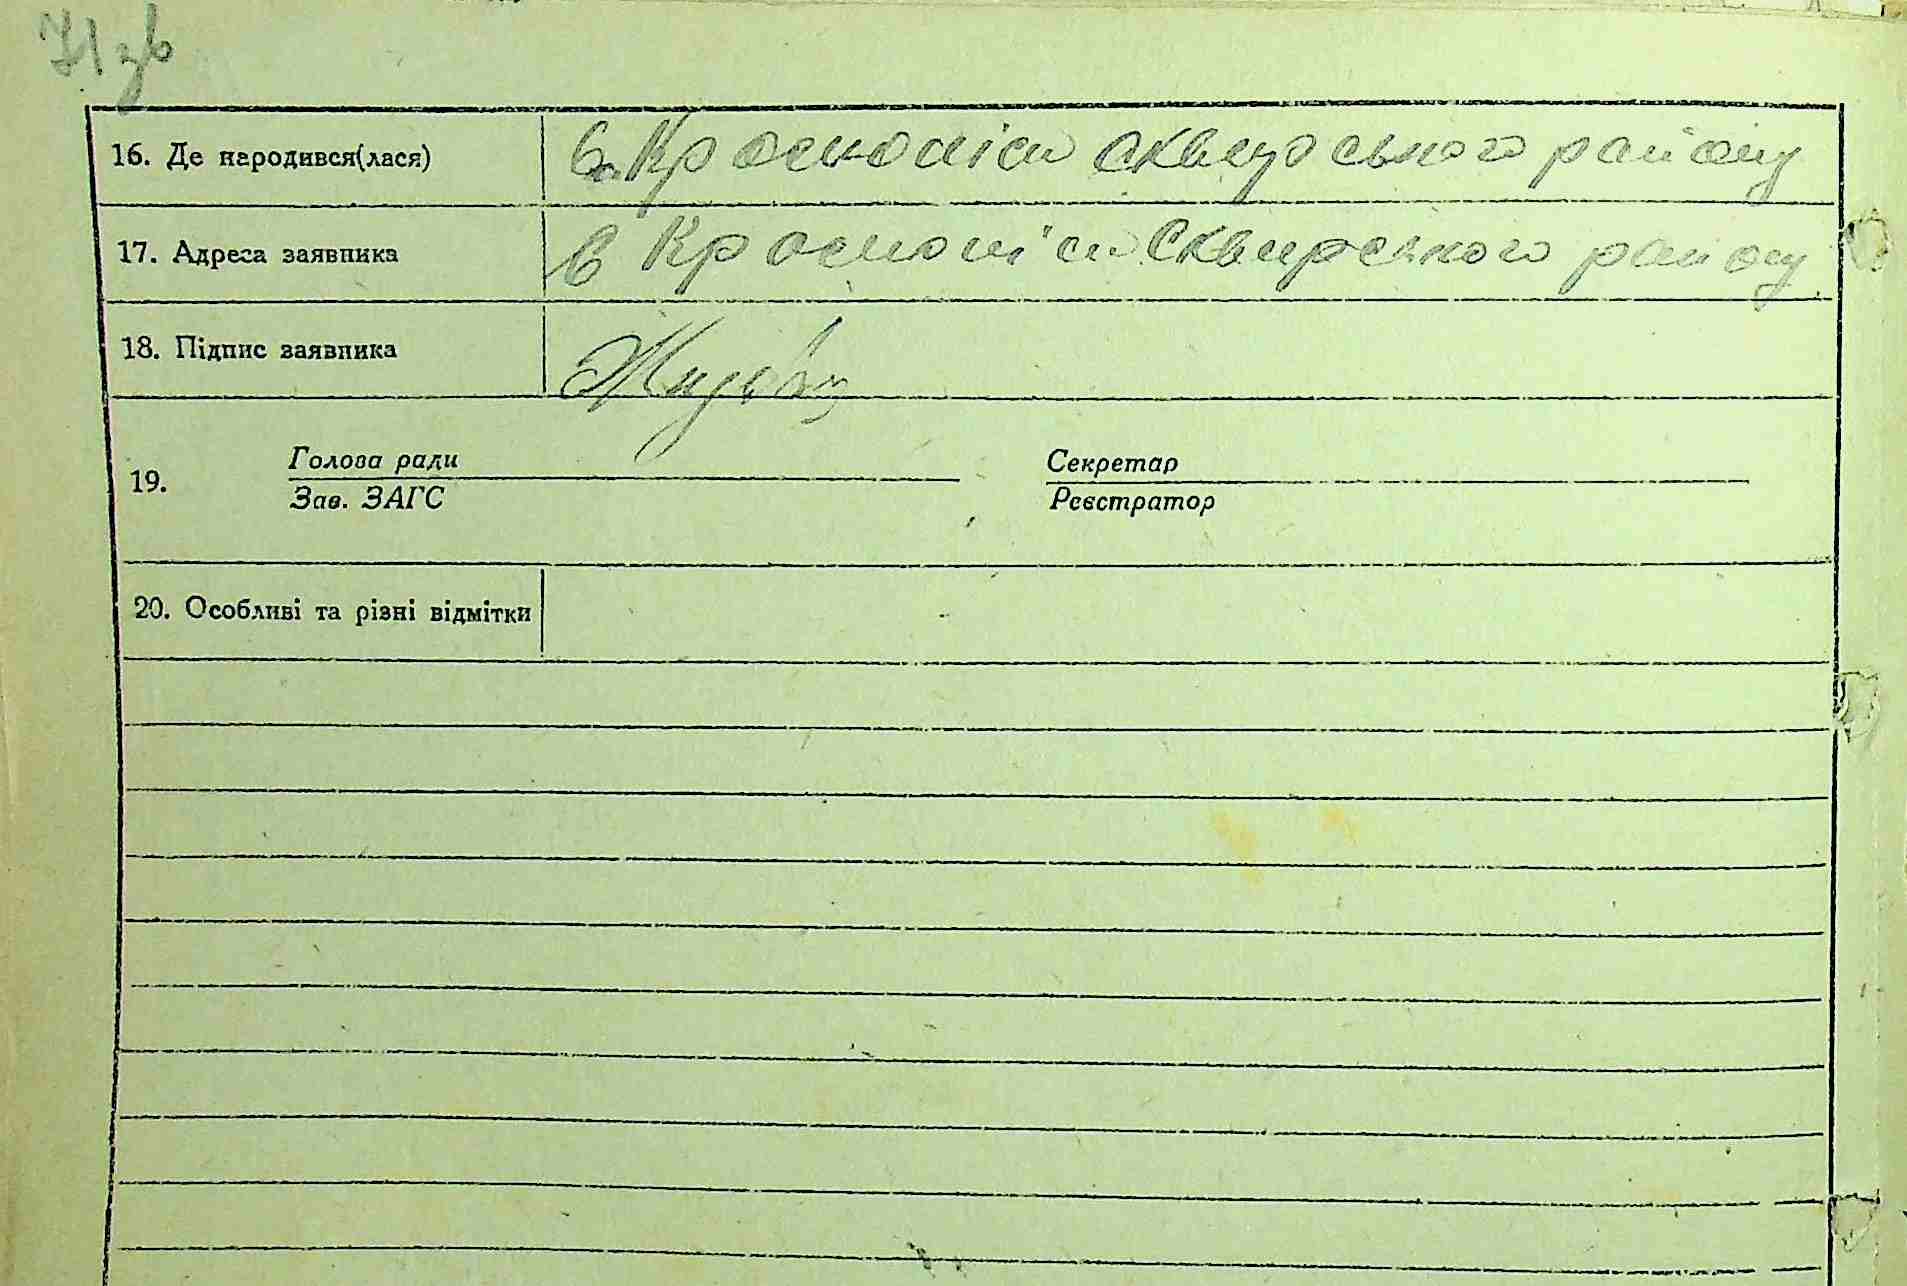 71 зв
16. Де народився(лася) в Красноліси сквирського району
17. Адреса заявника в Красноліси Сквирського району
18. Підпис заявника
19. Голова ради Секретар
Зав. ЗАГС Реєстратор
20. Особливі та різні відмітки